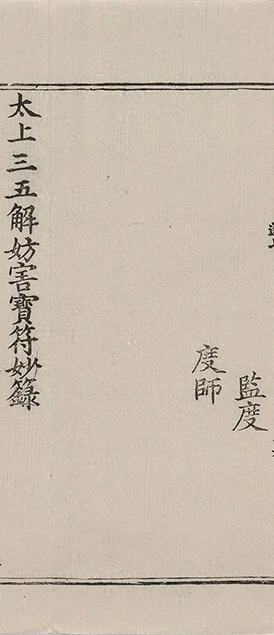 監度
度師
太上三五解妨害寶符妙籙